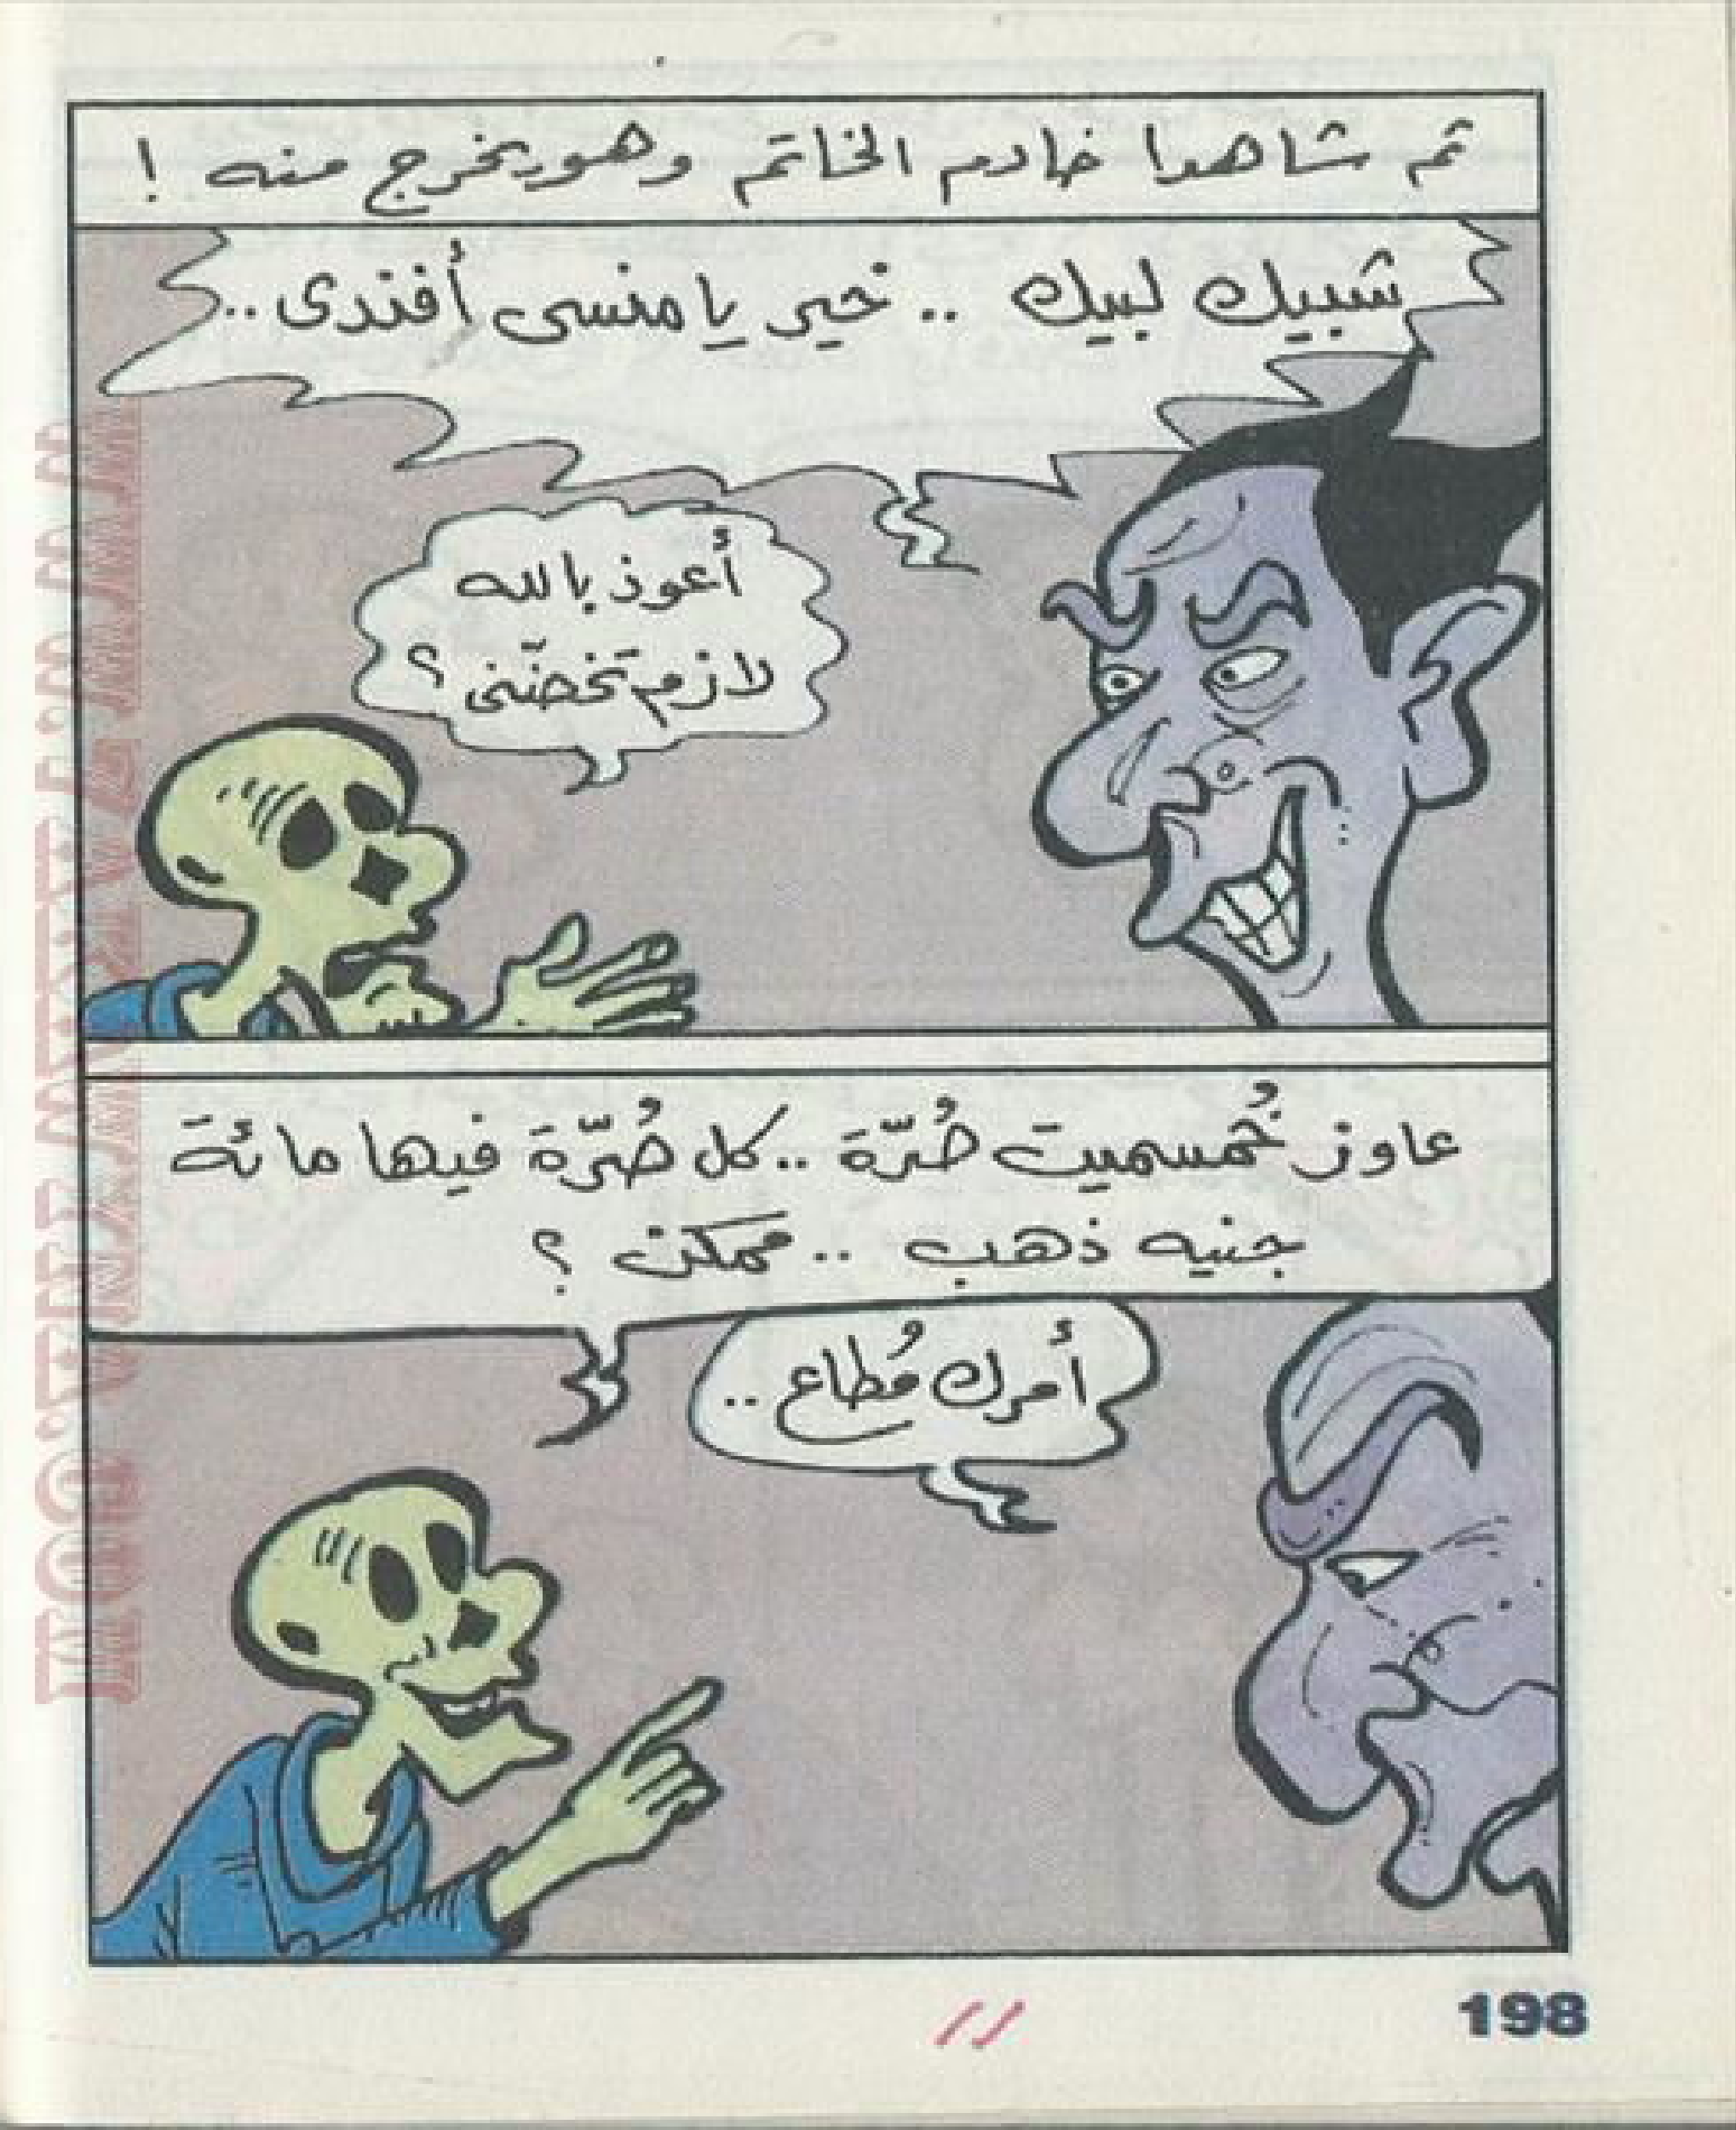 ثم شاهدا خادم الخاتم وهو يخرج منه !
شبيك لبيك .. خير يا منسى أفندى ..
أعوذ بالله
لازم تخضّنى ؟
عاوز خُمسميت صُرّة .. كل صُرّة فيها مائة
جنيه ذهب .. ممكن ؟
أمرك مُطاع ..
198